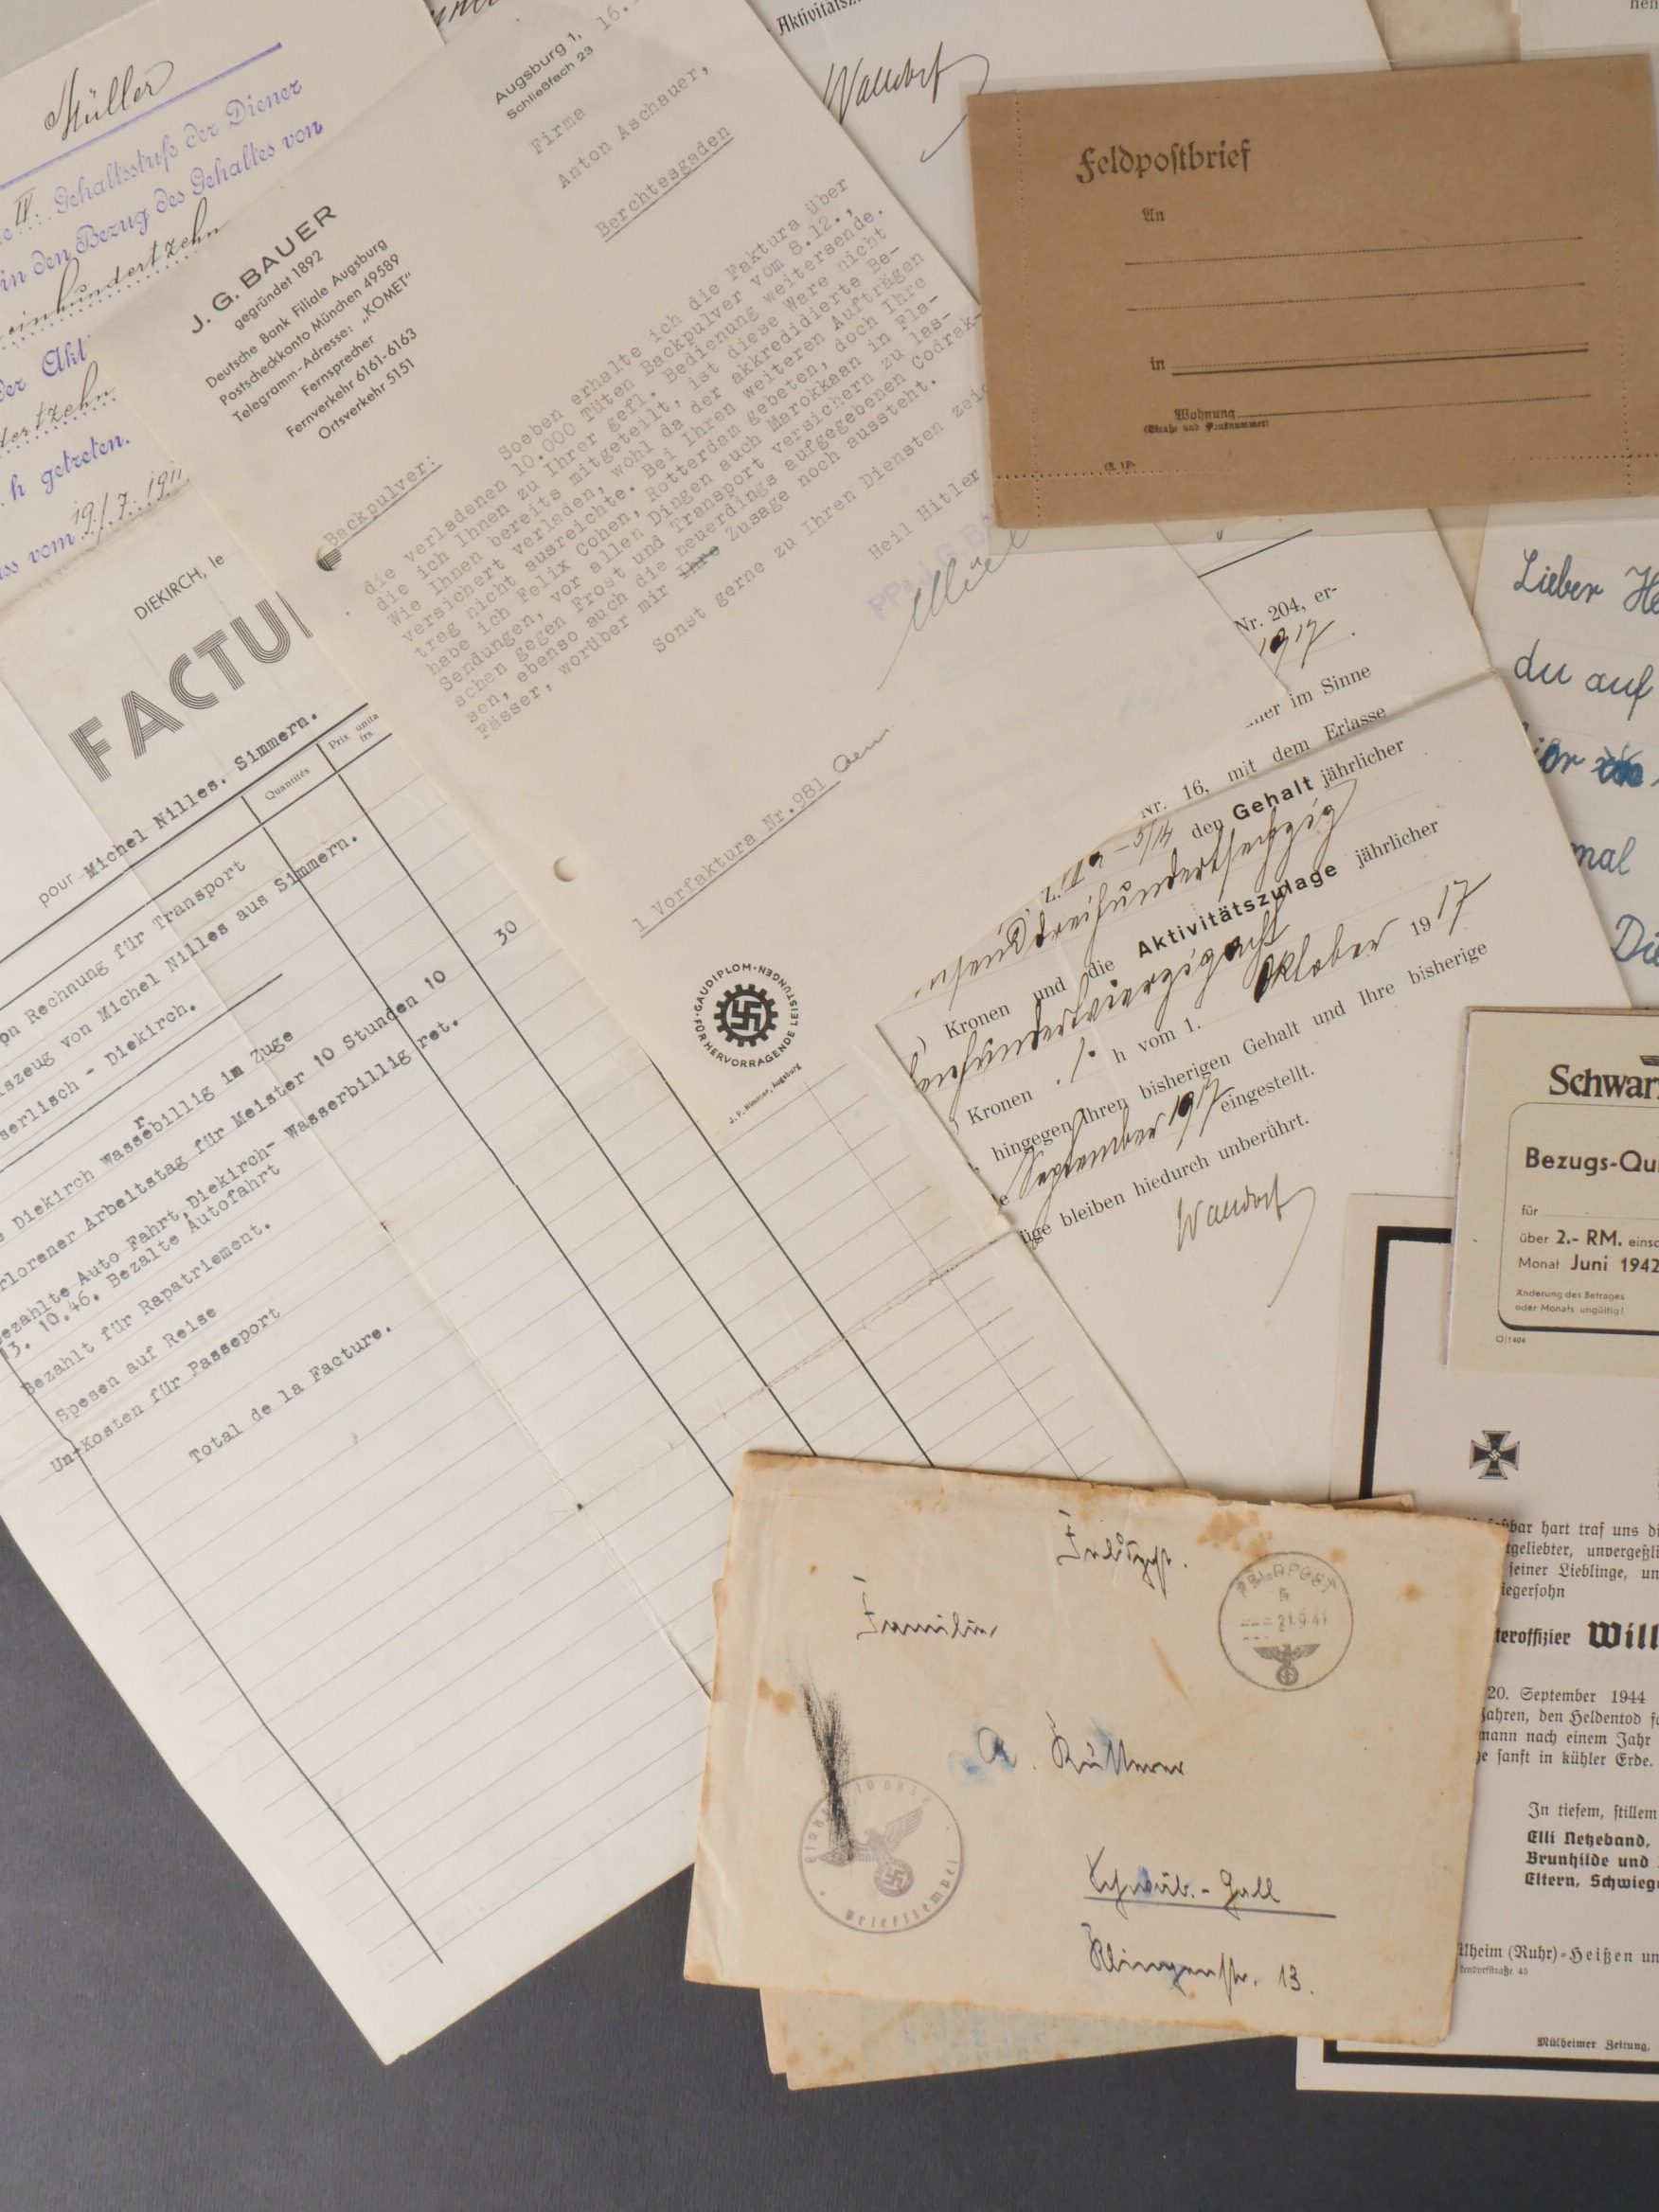 Müller
IV. Gehaltsstufe der Diener
in den Bezug des Gehaltes von
einhundertzehn
der Akt
h getreten.
vom 19/7. 1911
J. G. BAUER
gegründet 1892
Deutsche Bank Filiale Augsburg
Postscheckkonto München 49589
Telegramm-Adresse: „KOMET“
Fernsprecher
Fernverkehr 6161-6163
Ortsverkehr 5151
Augsburg 1,
Schließfach 23
16.
Firma
Anton Aschauer,
Berchtesgaden
Backpulver:
Soeben erhalte ich die Faktura über
die verladenen 10.000 Tüten Backpulver vom 8.12.,
die ich Ihnen zu Ihrer gefl. Bedienung weitersende.
Wie Ihnen bereits mitgeteilt, ist diese Ware nicht
versichert verladen, wohl da der akkredidierte Be-
trag nicht ausreichte. Bei Ihren weiteren Aufträgen
habe ich Felix Cohen, Rotterdam gebeten, doch Ihre
Sendungen, vor allen Dingen auch Marokkaan in Fla-
schen gegen Frost und Transport versichern zu las-
sen, ebenso auch die neuerdings aufgegebenen Codrak-
Fässer, worüber mir Ihre Zusage noch aussteht.
Sonst gerne zu Ihren Diensten
Heil Hitler
PPa. J. G. BA
1 Vorfaktura Nr.981
GAUDIPLOM
FÜR HERVORRAGENDE LEISTUNGEN
J. P. Himmer, Augsburg
DIEKIRCH, le
FACTU
pour Michel Nilles. Simmern.
Quantités
Prix unita
frs.
on Rechnung für Transport
szeug von Michel Nilles aus Simmern.
serlisch - Diekirch.
Diekirch Wassebillig im Zuge
r
rlorener Arbeitstag für Meister 10 Stunden 10
30
Bezahlte Auto Fahrt, Diekirch- Wasserbillig ret.
13. 10.46. Bezalte Autofahrt
Bezahlt für Rapatriement.
Spesen auf Reise
Un-Kosten für Passeport
Total de la Facture.
Aktivitätsz
Walldorf
Nr. 204, er-
1917.
im Sinne
Nr. 16, mit dem Erlasse
den Gehalt jährlicher
Kronen und die Aktivitätszulage jährlicher
Kronen h vom 1. Oktober 1917
hingegen Ihren bisherigen Gehalt und Ihre bisherige
eingestellt.
bleiben hiedurch unberührt.
Walldorf
Feldpostbrief
An
in
Wohnung
(Straße und Hausnummer)
Lieber He
du auf
mal
Die
Schwar
Bezugs-Qu
für
über 2.- RM. einsc
Monat Juni 1942
Änderung des Betrages
oder Monats ungültig!
O/1404
bar hart traf uns di
geliebter, unvergeßli
seiner Lieblinge, un
iegersohn
teroffizier Will
20. September 1944
Jahren, den Heldentod
mann nach einem Jahr
sanft in kühler Erde.
In tiefem, stillem
Elli Netzeband,
Brunhilde und
Eltern, Schwiege
lheim (Ruhr)-Heißen un
Mülheimer Zeitung,
FELDPOST
21.9.41
Familie
A. Küstner
Schwäb.-Hall
Klingenstr. 13.
Briefstempel